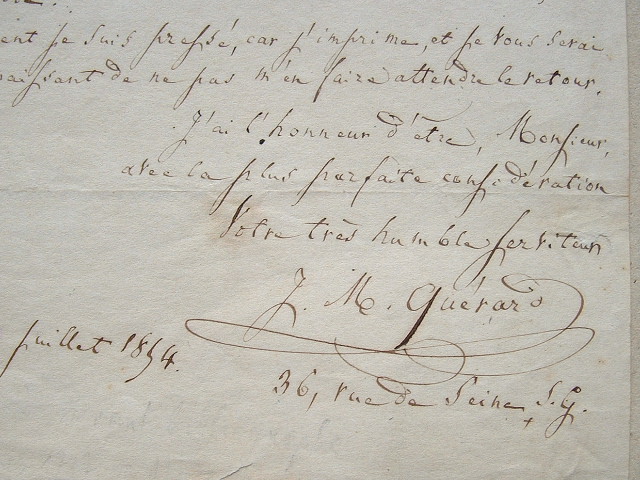 ent je suis pressé, car j'imprime, et je vous serai
aissant de ne pas m'en faire attendre le retour.
J'ai l'honneur d'être, Monsieur,
avec la plus parfaite considération
Votre très humble serviteur
J. M. Quérard
juillet 1854.
36, rue de Seine, S. G.